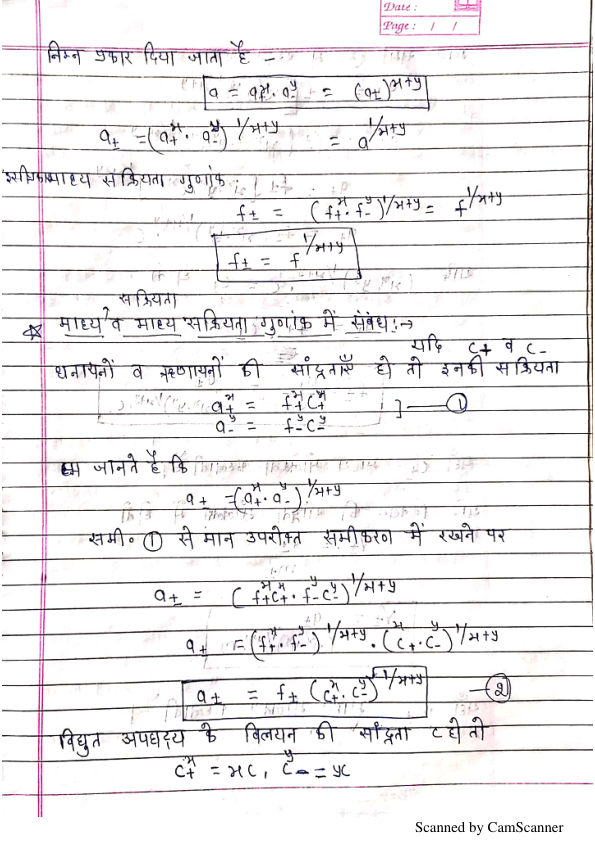 Date :
Page : / /
निम्न प्रकार दिया जाता है -
a = a₊ˣ. a₋ʸ = (a±)ˣ⁺ʸ
a± = (a₊ˣ. a₋ʸ)^1/x+y = a^1/x+y
माध्य सक्रियता गुणांक.
f± = (f₊ˣ. f₋ʸ)^1/x+y = f^1/x+y
f± = f^1/x+y
सक्रियता
माध्य व माध्य सक्रियता गुणांक में संबंध :→
यदि C₊ व C₋
धनायनों व ऋणायनों की सांद्रताएँ हो तो इनकी सक्रियता
a₊ˣ = f₊ˣC₊ˣ
a₋ʸ = f₋ʸC₋ʸ ] — ①
हम जानते है कि
a± = (a₊ˣ. a₋ʸ)^1/x+y
समी॰ ① से मान उपरोक्त समीकरण में रखने पर
a± = (f₊ˣC₊ˣ. f₋ʸC₋ʸ)^1/x+y
a± = (f₊ˣ. f₋ʸ)^1/x+y. (C₊ˣ. C₋ʸ)^1/x+y
a± = f± (C₊ˣ. C₋ʸ)^1/x+y — ②
विद्युत अपघट्य के विलयन की सांद्रता C हो तो
C₊ˣ = xC, C₋ʸ = yC
Scanned by CamScanner